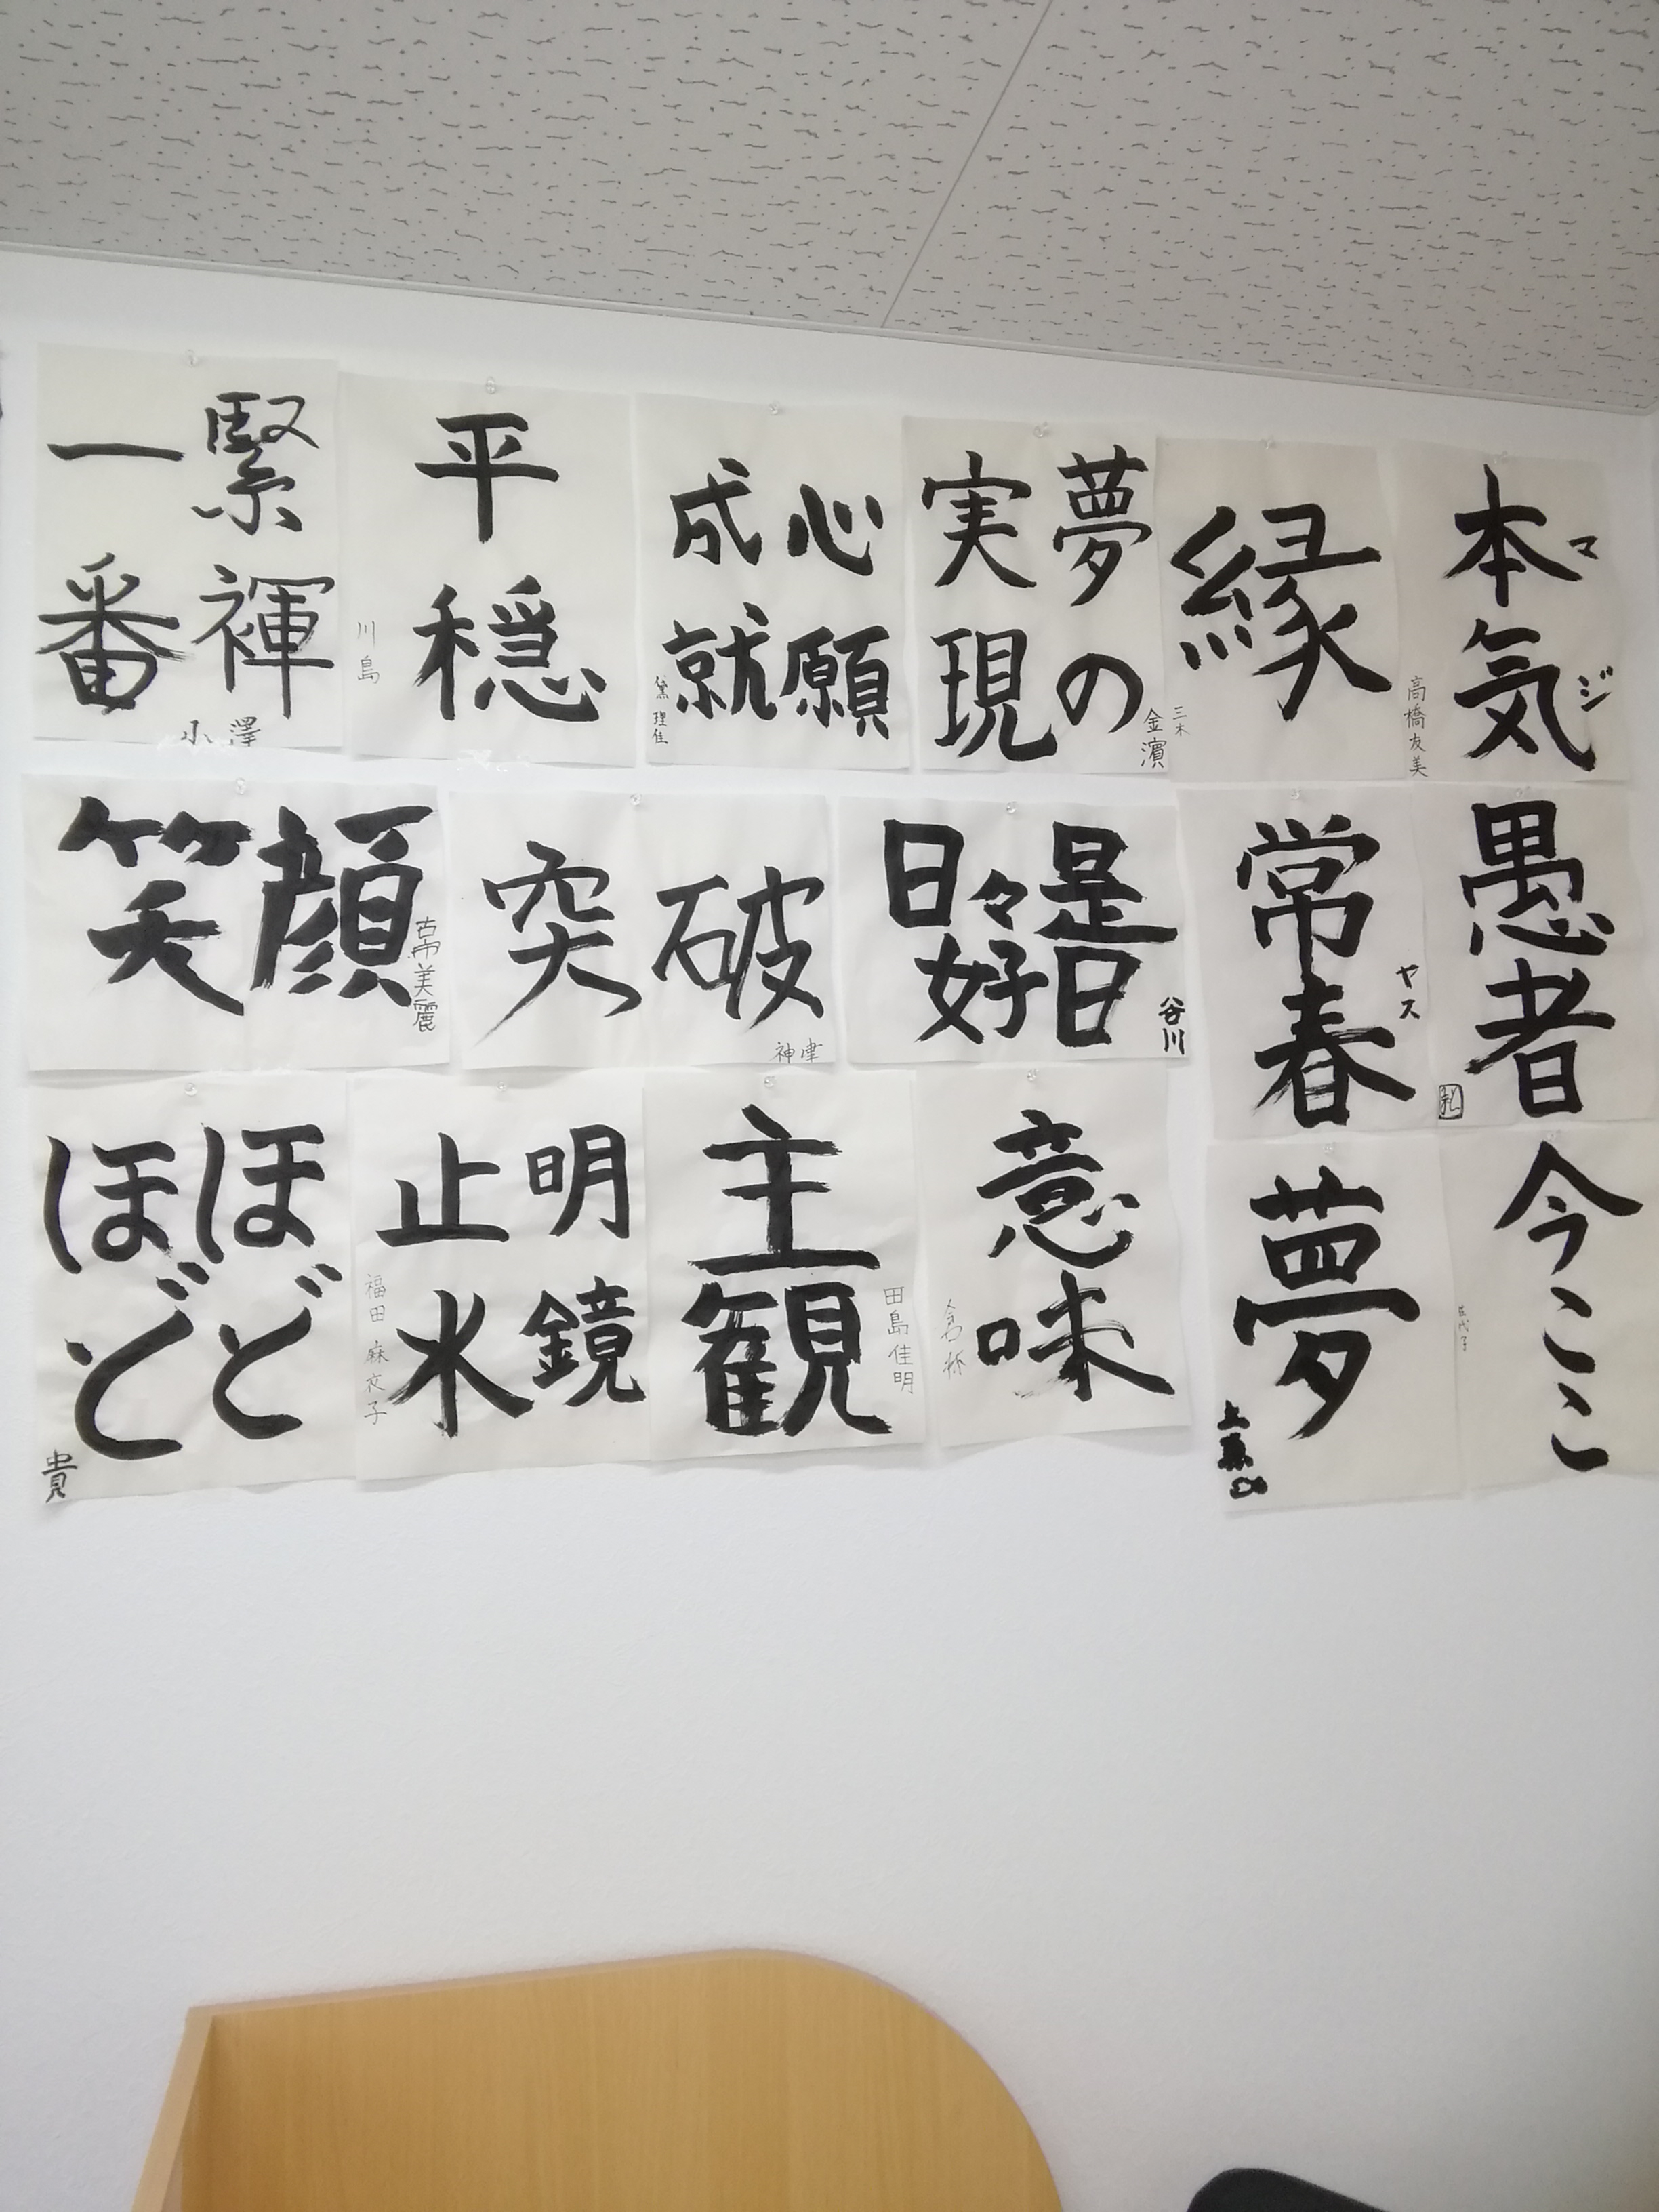 本気
マジ
高橋友美
縁
三木
夢の
実現
金濱
心願
成就
平穏
川島
緊褌
一番
小澤
愚者
常春
ヤス
日々
是
好日
谷川
突破
神津
笑顔
美麗
今ここ
夢
意味
主観
田島佳明
明鏡
止水
福田麻衣子
ほど
ほど
貴